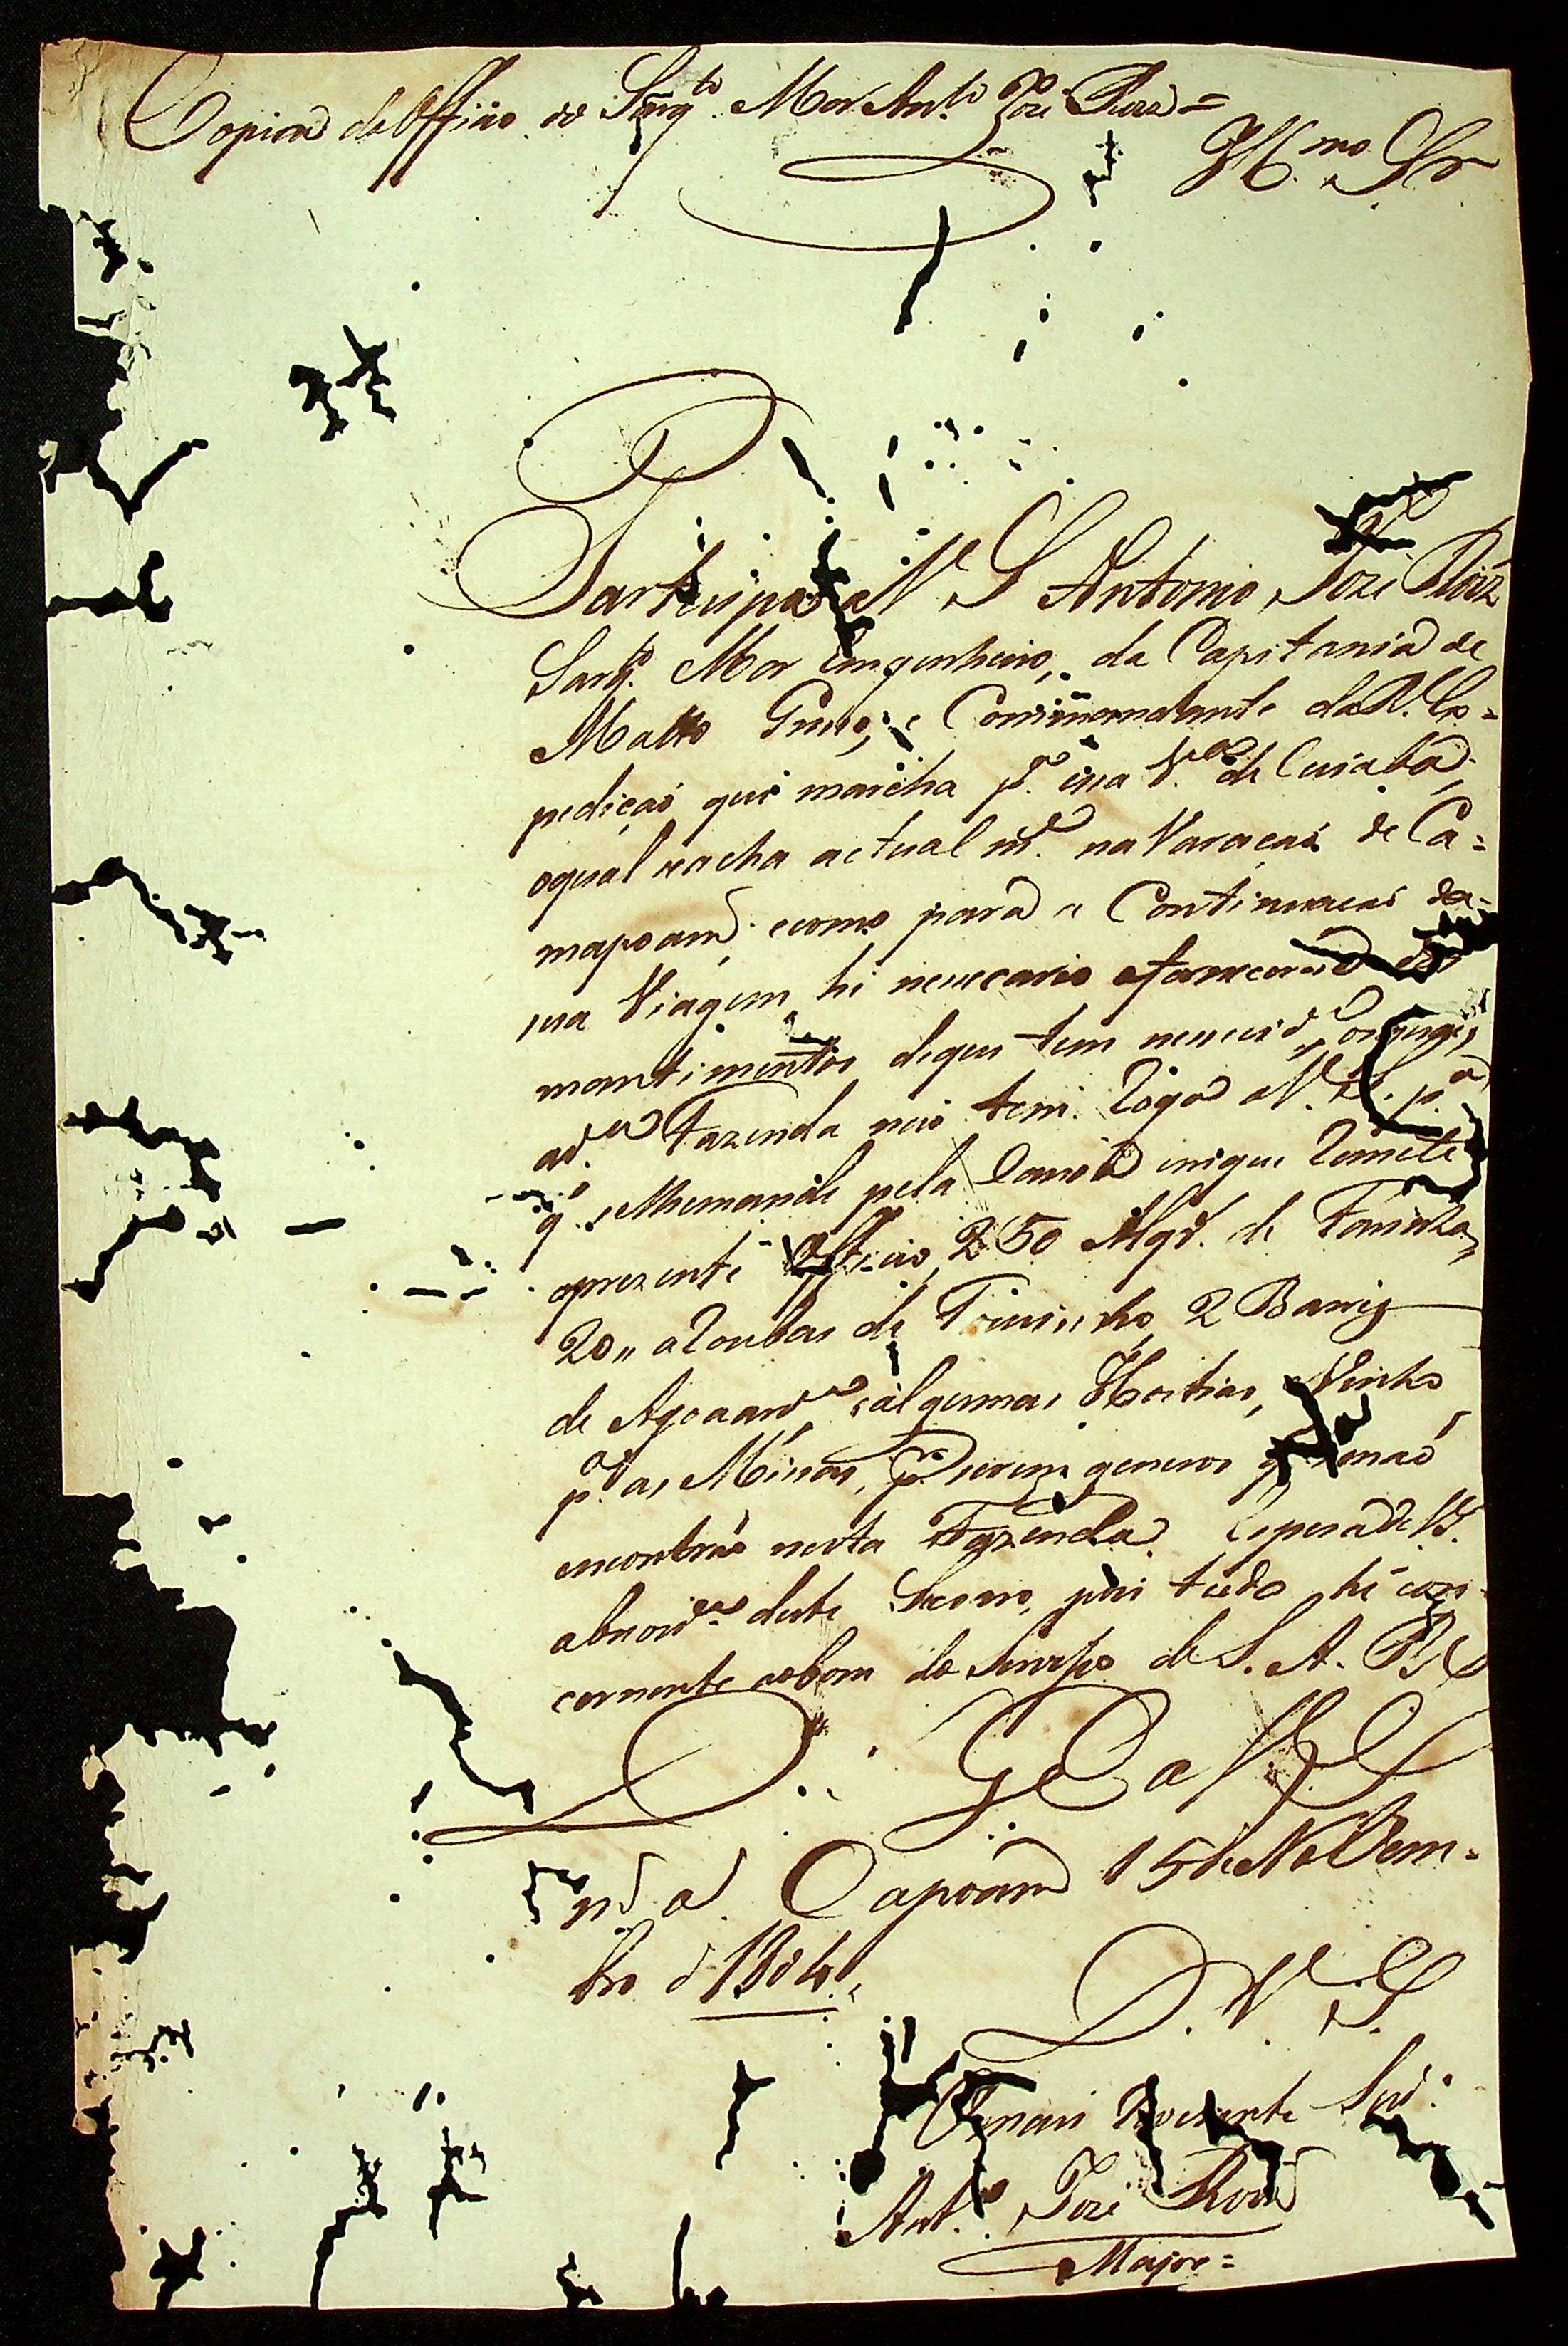 Copia do Officio do Sarg.to Mor Ant.o Joze Roiz=
Ill.mo Sr
Participa a V S Antonio Joze Roiz
Sarg.to Mor Emgenheiro, da Capitania de
Matto Groso, e Commandante da R. Ex=
pediçaõ que marcha p.a essa V.a de Cuiabá,
oqual seacha actual m.e na Varaçaõ de Ca=
mapoam; ecomo para a Continuacaõ da
sua Viagem, hé nececario os
mantimentos deque tem necesid.e, osquaes
ad.a Fazenda naõ tem. Roga a V. S. p.a
q. selhemande pela Canoa emque Remete
oprezente Officio, 250 Alqr. de Farinha,
20,, aRoubas de Toucinho, 2 Barriz
de Agoaard.e, ealgumas Hostias, eVinho
p.a as Missas, p.r serem generos q senaõ
encontraõ nesta Fazenda. Espera de V.S.
abrevid.e deste Socorro, pois tudo hé con-
cernente aobem do Serviço de S. A. R
D.s G.e a V S
m.s a. Capoam 15 de Novem=
bro d 1804.,
D. V. S.
O mais Reverente Sud.o
Ant.o Joze Roiz
Major=